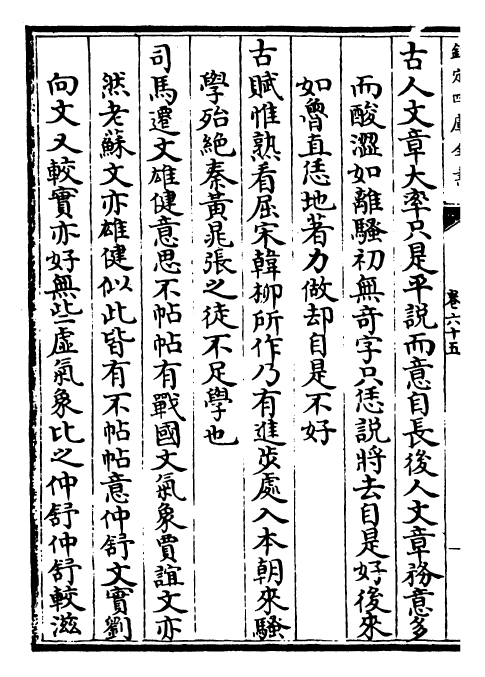 欽定四庫全書
卷六十五
古人文章大率只是平說而意自長後人文章務意多
而酸澀如離騷初無奇字只恁說將去自是好後來
如魯直恁地著力做却自是不好
古賦惟熟看屈宋韓柳所作乃有進步處入本朝來騷
學殆絶秦黃晁張之徒不足學也
司馬遷文雄健意思不帖帖有戰國文氣象賈誼文亦
然老蘇文亦雄健似此皆有不帖帖意仲舒文實劉
向文又較實亦好無些虛氣象比之仲舒仲舒較滋